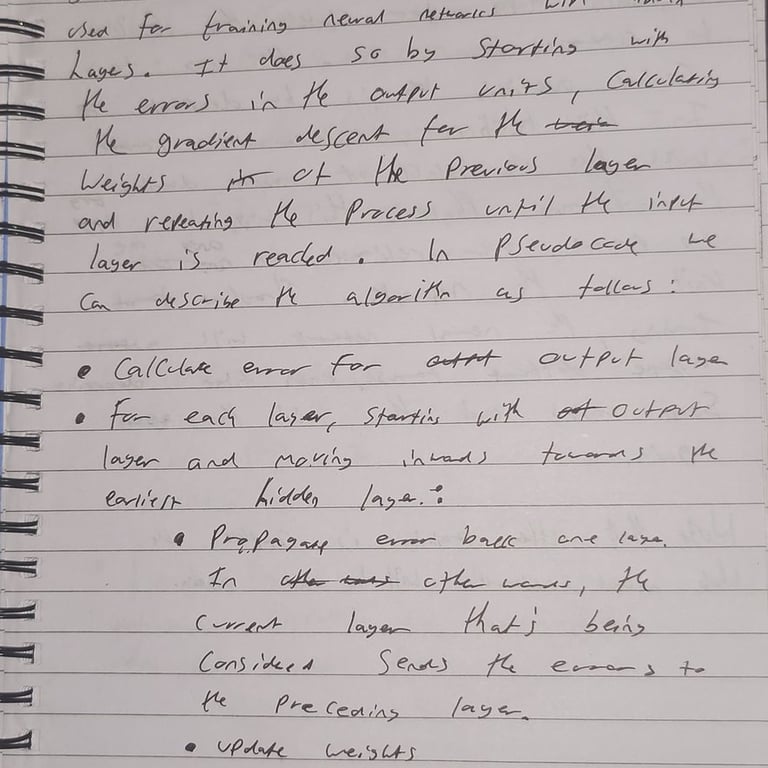 used for training neural networks with
Layers. It does so by starting with
the errors in the output units, calculating
the gradient descent for the
weights of the previous layer
and repeating the process until the input
layer is reached. In pseudocode we
can describe the algorithm as follows:
• Calculate error for output layer
• For each layer, starting with output
layer and moving inwards towards the
earliest hidden layer:
• Propagate error back one layer.
In other words, the
current layer that's being
considered sends the errors to
the preceding layer.
• update weights